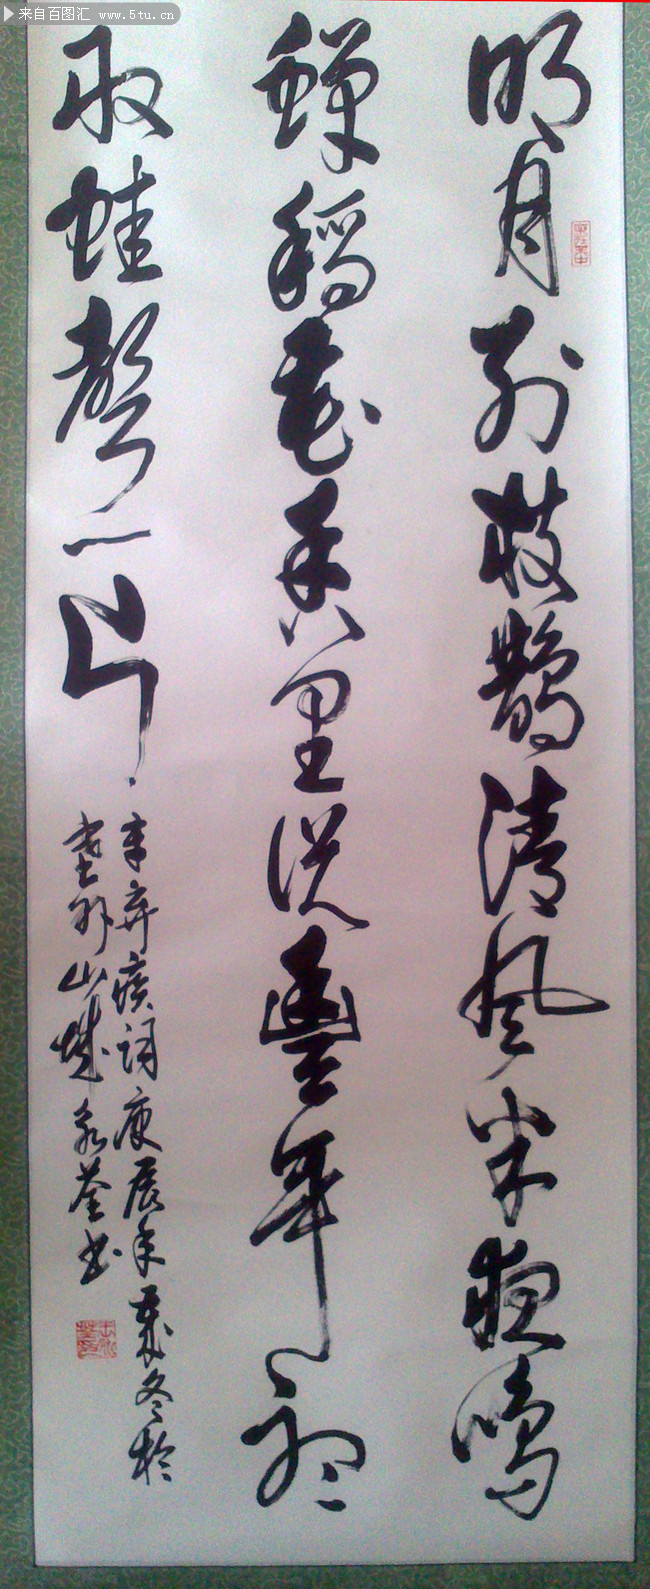 来自百图汇 www.5tu.cn
明月别枝鹊清风半夜鸣
蝉稻花香里说豐年听
取蛙聲一片
辛弃疾词庚辰年岁冬於
山城永荃书